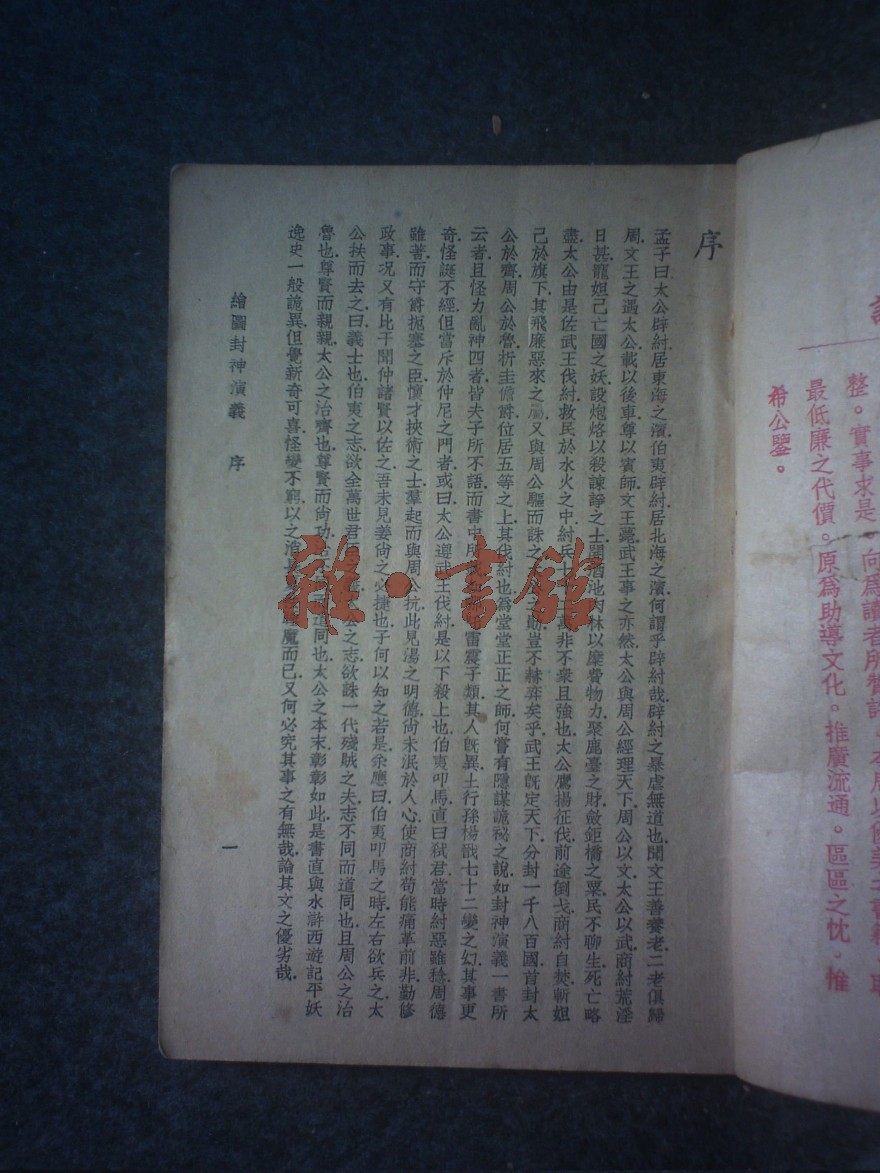 序
孟子曰太公辟紂居東海之濱伯夷辟紂居北海之濱何謂乎辟紂哉辟紂之暴虐無道也聞文王善養老二老俱歸
周文王之遇太公載以後車尊以賓師文王薨武王事之亦然太公與周公經理天下周公以文太公以武商紂荒淫
日甚寵妲己亡國之妖設炮烙以殺諫諍之士闢酒池肉林以糜費物力聚鹿臺之財斂鉅橋之粟民不聊生死亡略
盡太公由是佐武王伐紂救民於水火之中紂兵七十萬非不衆且強也太公鷹揚征伐前途倒戈商紂自焚斬妲
己於旗下其飛廉惡來之屬又與周公驅而誅之太公之勛豈不赫弈矣乎武王旣定天下分封一千八百國首封太
公於齊周公於魯析圭儋爵位居五等之上其伐紂也爲堂堂正正之師何嘗有隱謀詭秘之說如封神演義一書所
云者且怪力亂神四者皆夫子所不語而書中所雷震子類其人旣異土行孫楊戩七十二變之幻其事更
奇怪誕不經但當斥於仲尼之門者或曰太公遵武王伐紂是以下殺上也伯夷叩馬直曰弒君當時紂惡雖稔周德
雖著而守爵扼塞之臣懷才挾術之士羣起而與周公抗此見湯之明德尙未泯於人心使商紂苟能痛革前非勤修
政事況又有比干聞仲諸賢以佐之吾未見姜尙之必捷也子何以知之若是余應曰伯夷叩馬之時左右欲兵之太
公扶而去之曰義士也伯夷之志欲全萬世君公之志欲誅一代殘賊之夫志不同而道同也且周公之治
魯也尊賢而親親太公之治齊也尊賢而尙功道同也太公之本末彰彰如此是書直與水滸西遊記平妖
逸史一般詭異但覺新奇可喜怪變不窮以之消魔而已又何必究其事之有無哉論其文之優劣哉
繪圖封神演義 序
一
雜·書館
整。實事求是。向爲讀者所贊許。
最低廉之代價。原爲助導文化。推廣流通。區區之忱。惟
希公鑒。